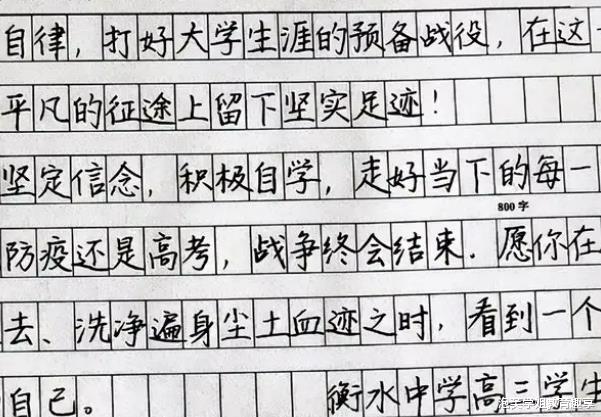 自律，打好大学生涯的预备战役，在这
平凡的征途上留下坚实足迹！
坚定信念，积极自学，走好当下的每一
800字
防疫还是高考，战争终会结束．愿你在
去、洗净遍身尘土血迹之时，看到一个
自己。 衡水中学高三学生